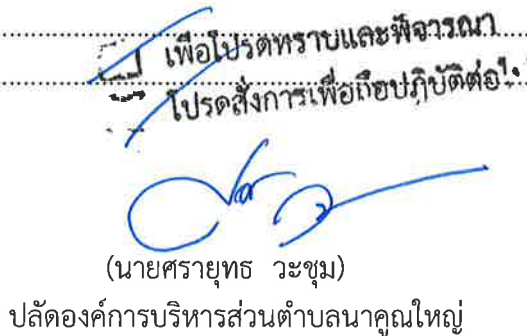 เพื่อโปรดทราบและพิจารณา
โปรดสั่งการเพื่อถือปฏิบัติต่อไป
(นายศรายุทธ วะชุม)
ปลัดองค์การบริหารส่วนตำบลนาคูณใหญ่